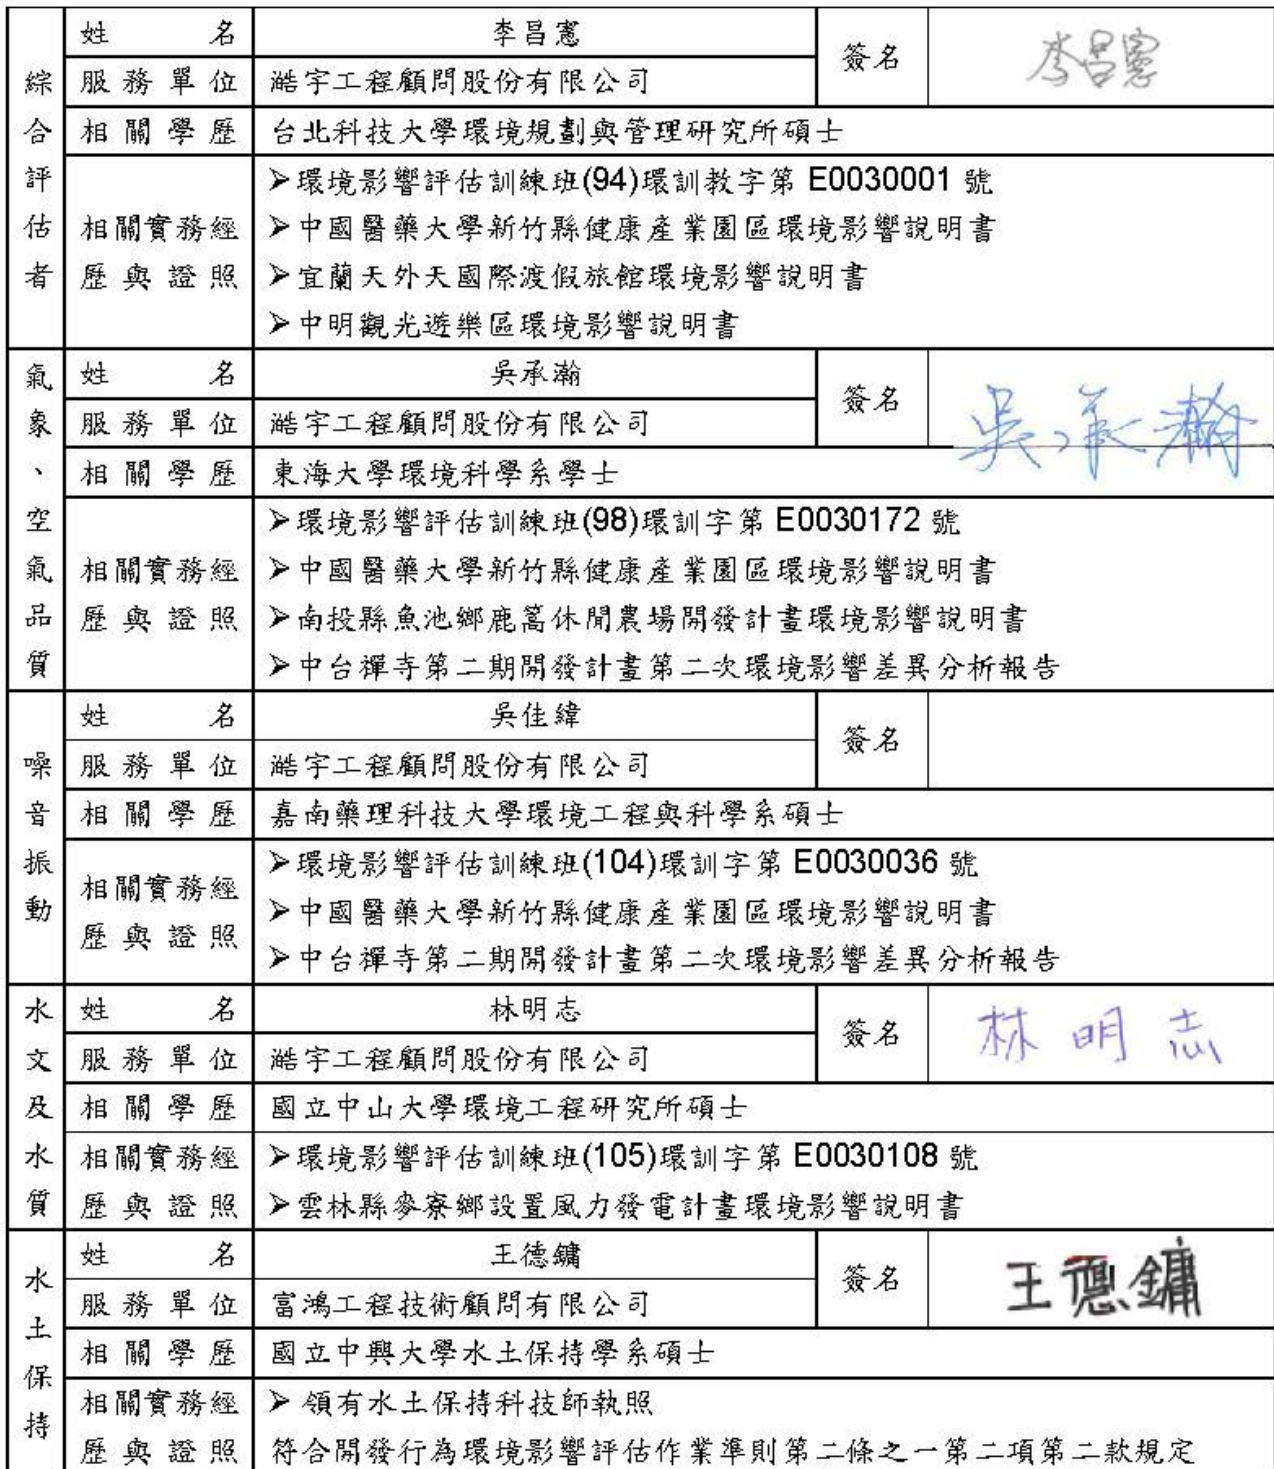 綜合評估者
姓名 李昌憲 簽名 李昌憲
服務單位 澔宇工程顧問股份有限公司
相關學歷 台北科技大學環境規劃與管理研究所碩士
相關實務經歷與證照
➢環境影響評估訓練班(94)環訓教字第 E0030001 號
➢中國醫藥大學新竹縣健康產業園區環境影響說明書
➢宜蘭天外天國際渡假旅館環境影響說明書
➢中明觀光遊樂區環境影響說明書
氣象、空氣品質
姓名 吳承瀚 簽名 吳承瀚
服務單位 澔宇工程顧問股份有限公司
相關學歷 東海大學環境科學系學士
相關實務經歷與證照
➢環境影響評估訓練班(98)環訓字第 E0030172 號
➢中國醫藥大學新竹縣健康產業園區環境影響說明書
➢南投縣魚池鄉鹿篙休閒農場開發計畫環境影響說明書
➢中台禪寺第二期開發計畫第二次環境影響差異分析報告
噪音振動
姓名 吳佳緯 簽名
服務單位 澔宇工程顧問股份有限公司
相關學歷 嘉南藥理科技大學環境工程與科學系碩士
相關實務經歷與證照
➢環境影響評估訓練班(104)環訓字第 E0030036 號
➢中國醫藥大學新竹縣健康產業園區環境影響說明書
➢中台禪寺第二期開發計畫第二次環境影響差異分析報告
水文及水質
姓名 林明志 簽名 林明志
服務單位 澔宇工程顧問股份有限公司
相關學歷 國立中山大學環境工程研究所碩士
相關實務經歷與證照
➢環境影響評估訓練班(105)環訓字第 E0030108 號
➢雲林縣麥寮鄉設置風力發電計畫環境影響說明書
水土保持
姓名 王德鏞 簽名 王德鏞
服務單位 富鴻工程技術顧問有限公司
相關學歷 國立中興大學水土保持學系碩士
相關實務經歷與證照
➢ 領有水土保持科技師執照
符合開發行為環境影響評估作業準則第二條之一第二項第二款規定